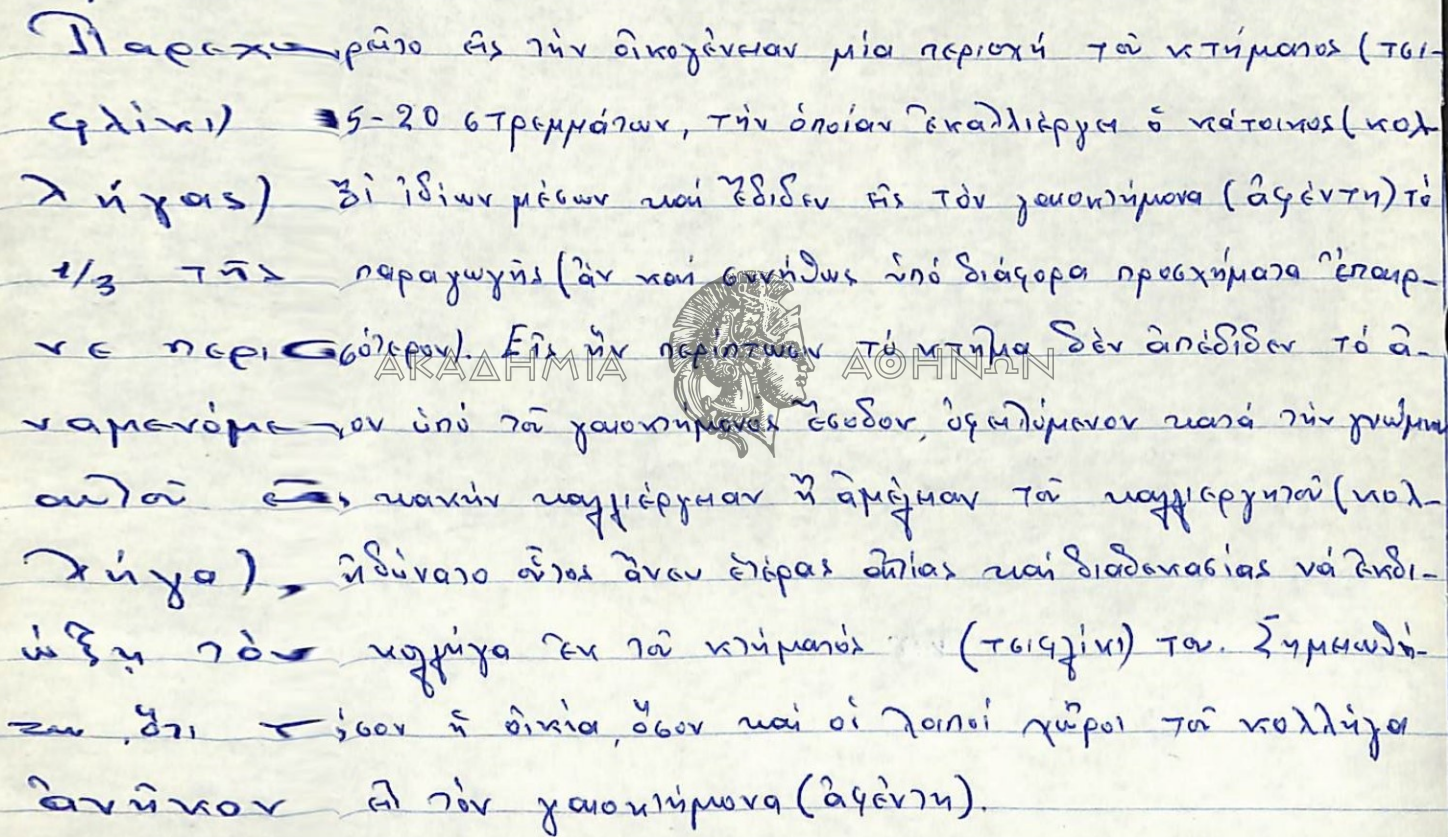 Παρεχωρεῖτο εἰς τήν οἰκογένειαν μία περιοχή τοῦ κτήματος (τσι-
φλίκι) 5-20 στρεμμάτων, τήν ὁποίαν ἐκαλλιέργει ὁ κάτοικος (κολ-
λήγας) δι' ἰδίων μέσων καί ἔδιδεν εἰς τόν γαιοκτήμονα (ἀφέντη) τό
1/3 τῆς παραγωγῆς (ἄν καί συνήθως ὑπό διάφορα προσχήματα ἔπαιρ-
νε περισσότερον). Εἰς ἥν περίπτωσιν τό κτῆμα δέν ἀπέδιδεν τό ἀ-
ναμενόμενον ὑπό τοῦ γαιοκτήμονος ἔσοδον, ὀφειλόμενον κατά τήν γνώμην
αὐτοῦ εἰς κακήν καλλιέργειαν ἤ ἀμέλειαν τοῦ καλλιεργητοῦ (κολ-
λήγα), ἠδύνατο οὗτος ἄνευ ἑτέρας αἰτίας καί διαδικασίας νά ἐκδι-
ώξῃ τόν κολλήγα ἐκ τοῦ κτήματός (τσιφλίκι) του. Σημειωθή-
τω ὅτι τόσον ἡ οἰκία, ὅσον καί οἱ λοιποί χῶροι τοῦ κολλήγα
ἀνῆκον εἰς τόν γαιοκτήμονα (ἀφέντη).
ΑΚΑΔΗΜΙΑ ΑΘΗΝΩΝ